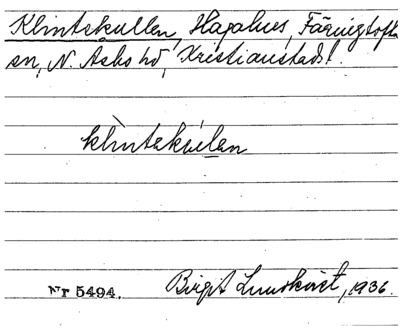 Klintekullen, Hagahus, Färingtofta
sn, N. Åsbo hd, Kristianstads l.
klìntekúlen
Nr 5494. Birgit Lundkvist, 1936.